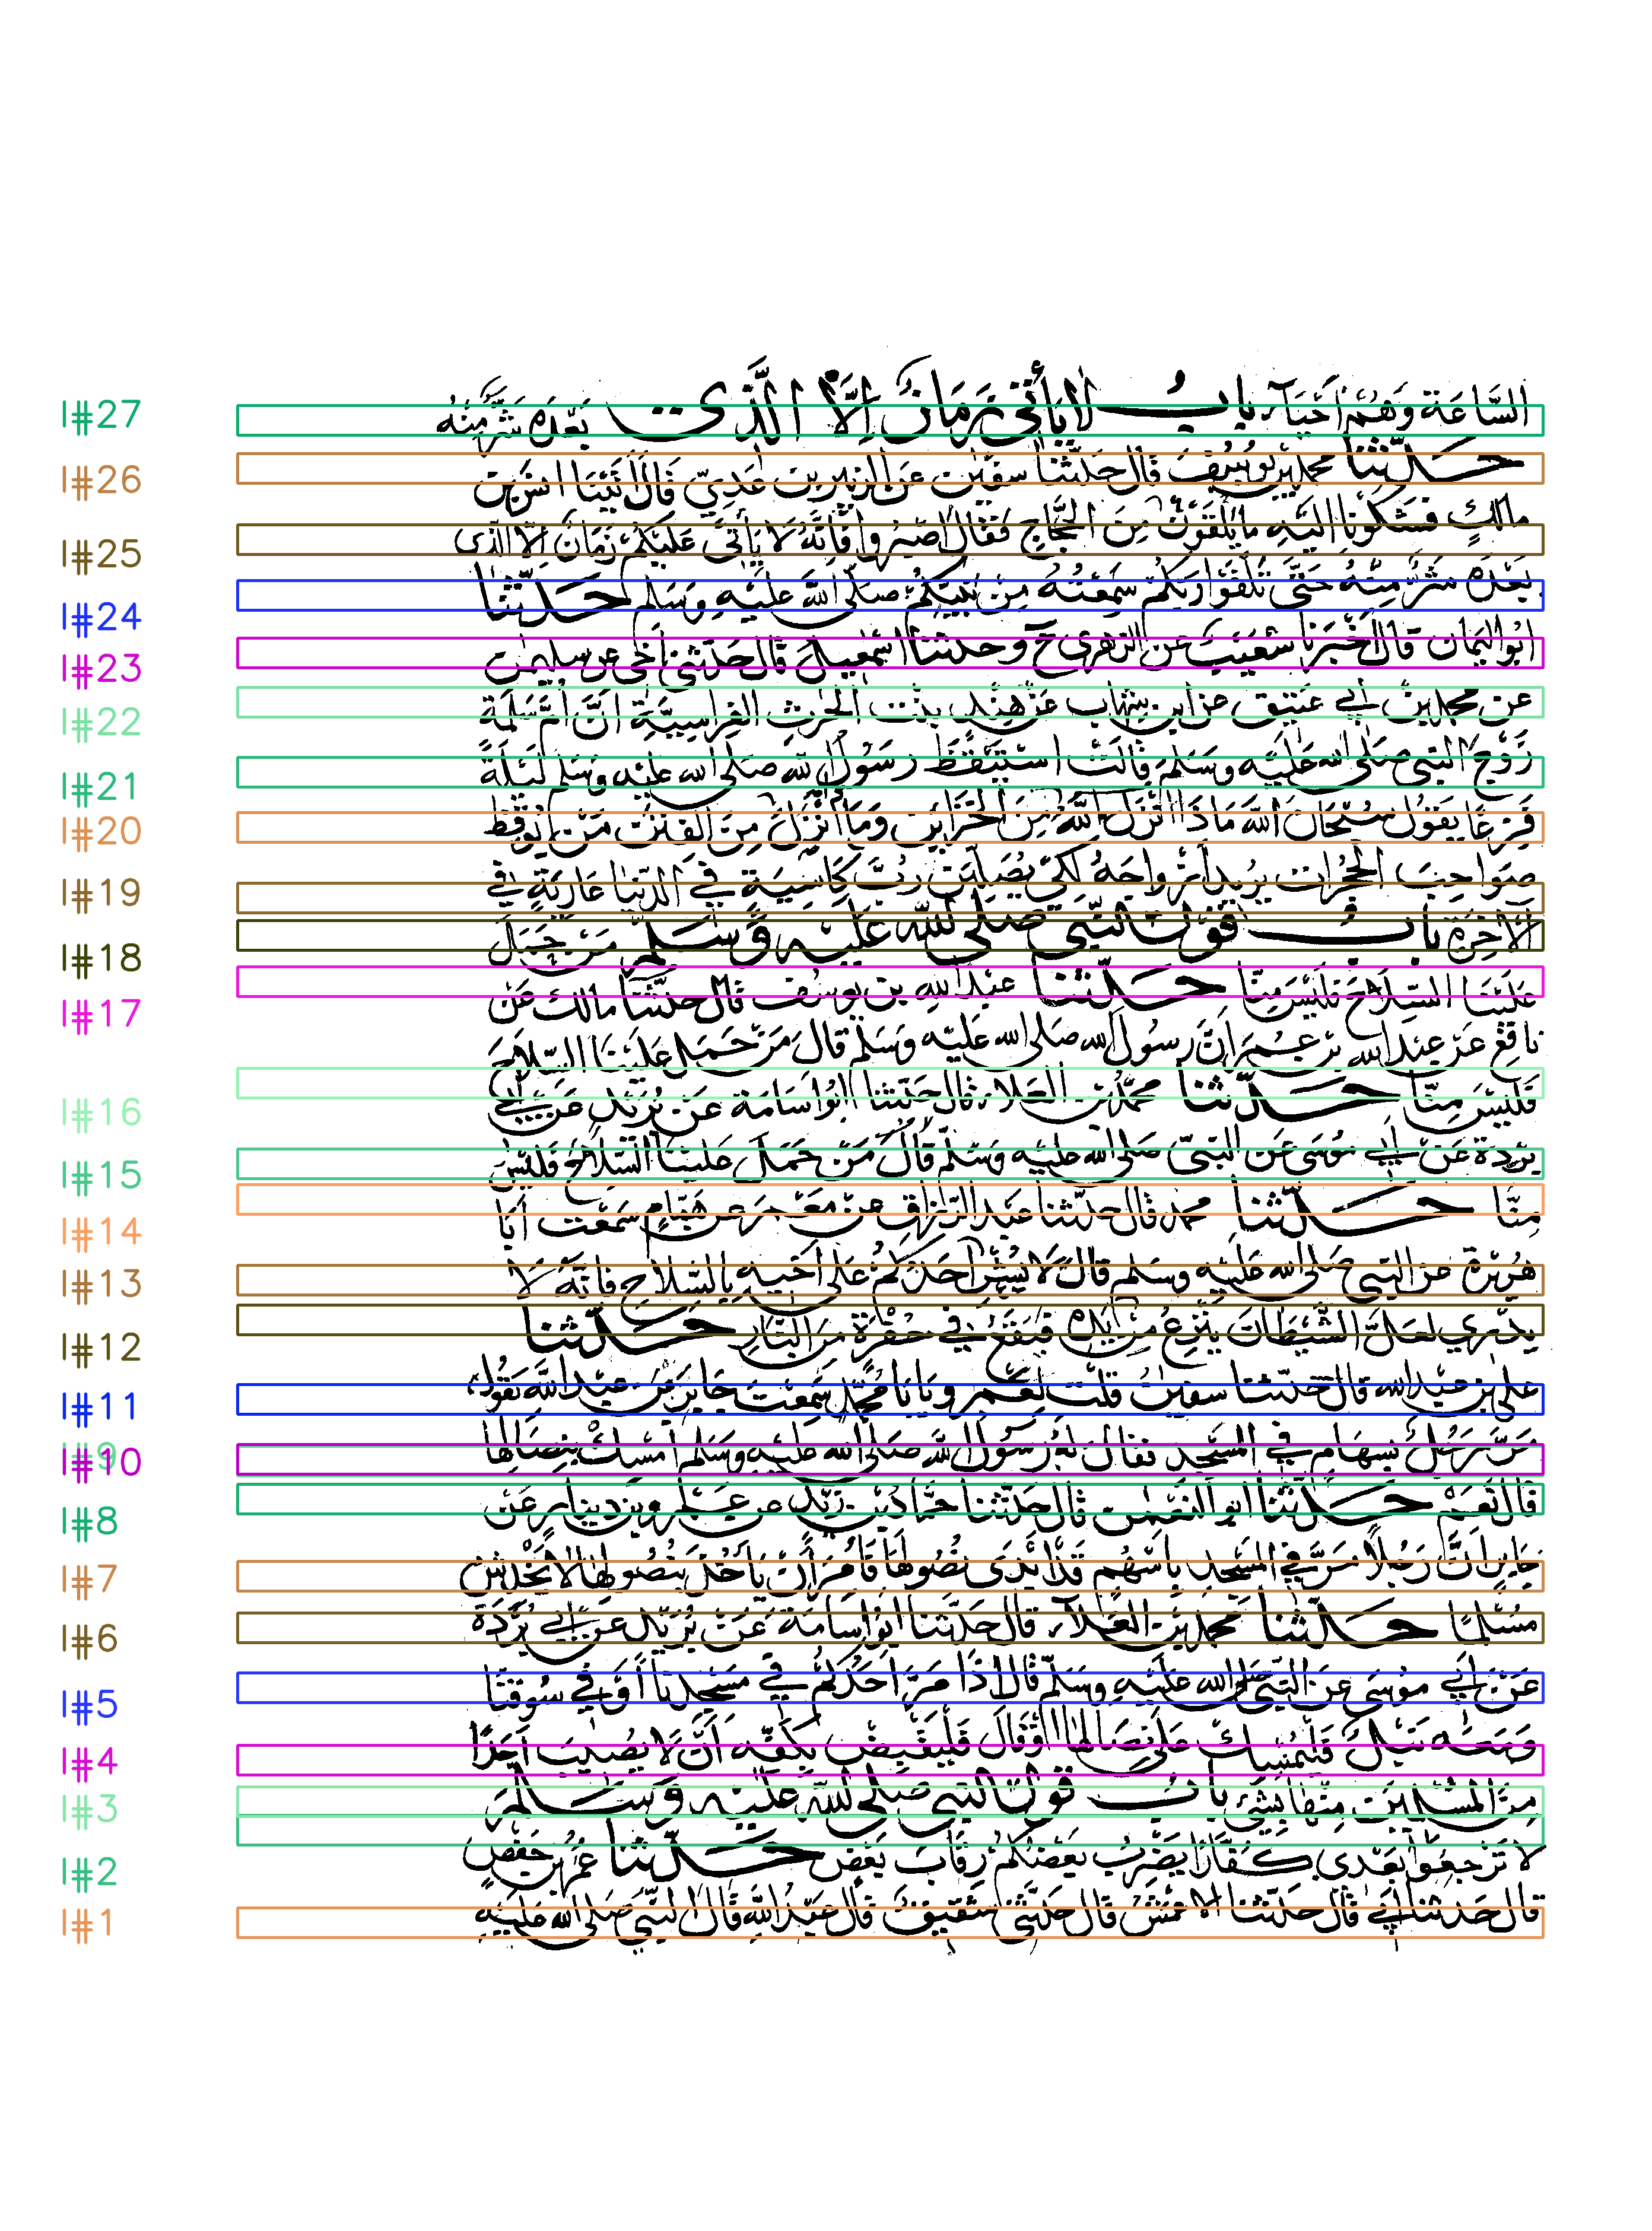 الساعة وهم احياء باب لا ياتي زمان الا الذي بعده شر منه
حدثنا محمد بن يوسف قال حدثنا سفين عن الزبير بن عدي قال اتينا انس بن
مالك فشكونا اليه ما يلقون من الحجاج فقال اصبروا فانه لا ياتي عليكم زمان الا الذي
بعده شر منه حتى تلقوا ربكم سمعته من نبيكم صلى الله عليه وسلم حدثنا
ابو اليمان قال اخبرنا شعيب عن الزهري ح وحدثنا اسمعيل قال حدثني اخي عن سليمن
عن محمد بن ابي عتيق عن ابن شهاب عن هند بنت الحرث الفراسية ان ام سلمة
زوج النبي صلى الله عليه وسلم قالت استيقظ رسول الله صلى الله عليه وسلم ليلة
فزعا يقول سبحان الله ما ذا انزل الله من الخزاين وما انزل من الفتن من يوقظ
صواحب الحجرات يريد ازواجه لكي يصلين رب كاسية في الدنيا عارية في
الاخرة باب قول النبي صلى الله عليه وسلم من حمل
علينا السلاح فليس منا حدثنا عبد الله بن يوسف قال حدثنا مالك عن
نافع عن عبد الله بن عمر ان رسول الله صلى الله عليه وسلم قال من حمل علينا السلاح
فليس منا حدثنا محمد بن العلاء قال حدثنا ابو اسامة عن بريد عن ابي
بردة عن ابي موسى عن النبي صلى الله عليه وسلم قال من حمل علينا السلاح فليس
منا حدثنا محمد قال حدثنا عبد الرزاق عن معمر عن همام سمعت ابا
هريرة عن النبي صلى الله عليه وسلم قال لا يشير احدكم على اخيه بالسلاح فانه لا
يدري لعل الشيطان ينزع من يده فيقع في حفرة من النار حدثنا
علي بن عبد الله قال حدثنا سفين قلت لعمرو يا ابا محمد سمعت جابر بن عبد الله يقول
مر رجل بسهام في المسجد فقال له رسول الله صلى الله عليه وسلم امسك بنصالها
قال نعم حدثنا ابو النعمن قال حدثنا حماد بن زيد عن عمرو بن دينار عن
جابر ان رجلا مر في المسجد باسهم قد ابدى نصولها فامر ان ياخذ بنصولها لا يخدش
مسلما حدثنا محمد بن العلاء قال حدثنا ابو اسامة عن بريد عن ابي بردة
عن ابي موسى عن النبي صلى الله عليه وسلم قال اذا مر احدكم في مسجدنا او في سوقنا
ومعه نبل فليمسك على نصالها او قال فليقبض بكفه ان لا يصيب احدا
من المسلمين منها بشئ باب قول النبي صلى الله عليه وسلم
لا ترجعوا بعدي كفارا يضرب بعضكم رقاب بعض حدثنا عمر بن حفص
قال حدثنا ابي قال حدثنا الاعمش قال حدثني شقيق قال قال عبد الله قال النبي صلى الله عليه